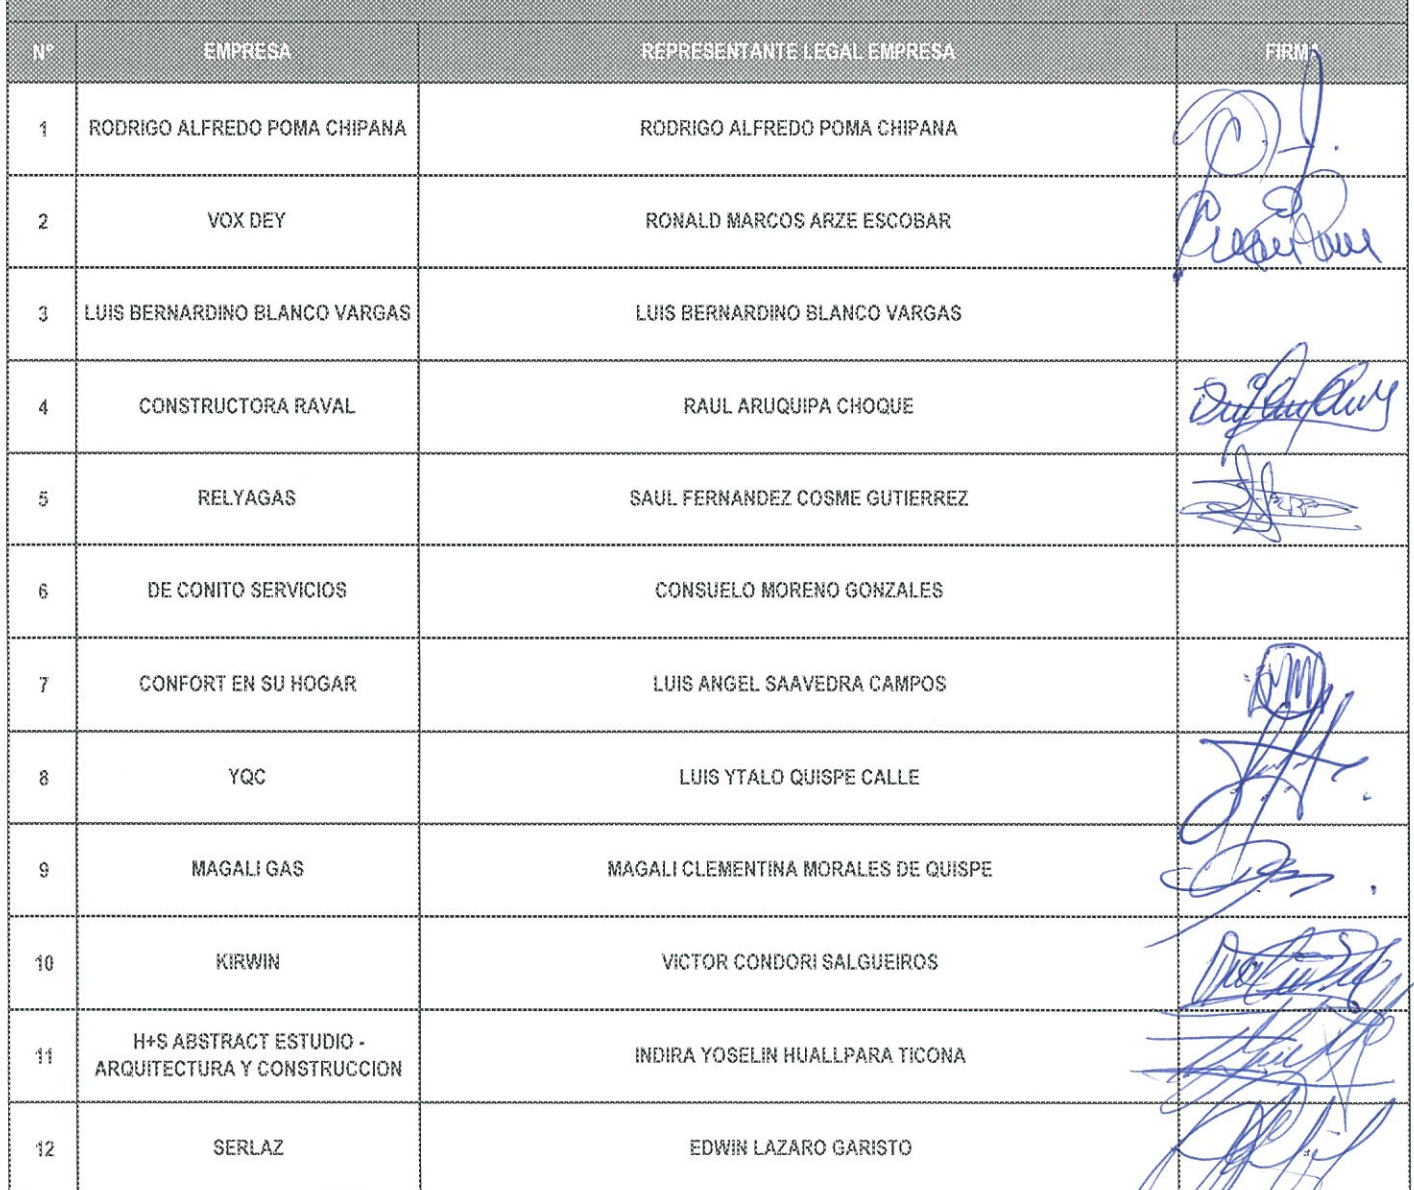 N° EMPRESA REPRESENTANTE LEGAL EMPRESA FIRMA
1 RODRIGO ALFREDO POMA CHIPANA RODRIGO ALFREDO POMA CHIPANA
2 VOX DEY RONALD MARCOS ARZE ESCOBAR
3 LUIS BERNARDINO BLANCO VARGAS LUIS BERNARDINO BLANCO VARGAS
4 CONSTRUCTORA RAVAL RAUL ARUQUIPA CHOQUE
5 RELYAGAS SAUL FERNANDEZ COSME GUTIERREZ
6 DE CONITO SERVICIOS CONSUELO MORENO GONZALES
7 CONFORT EN SU HOGAR LUIS ANGEL SAAVEDRA CAMPOS
8 YQC LUIS YTALO QUISPE CALLE
9 MAGALI GAS MAGALI CLEMENTINA MORALES DE QUISPE
10 KIRWIN VICTOR CONDORI SALGUEIROS
11 H+S ABSTRACT ESTUDIO -
ARQUITECTURA Y CONSTRUCCION INDIRA YOSELIN HUALLPARA TICONA
12 SERLAZ EDWIN LAZARO GARISTO